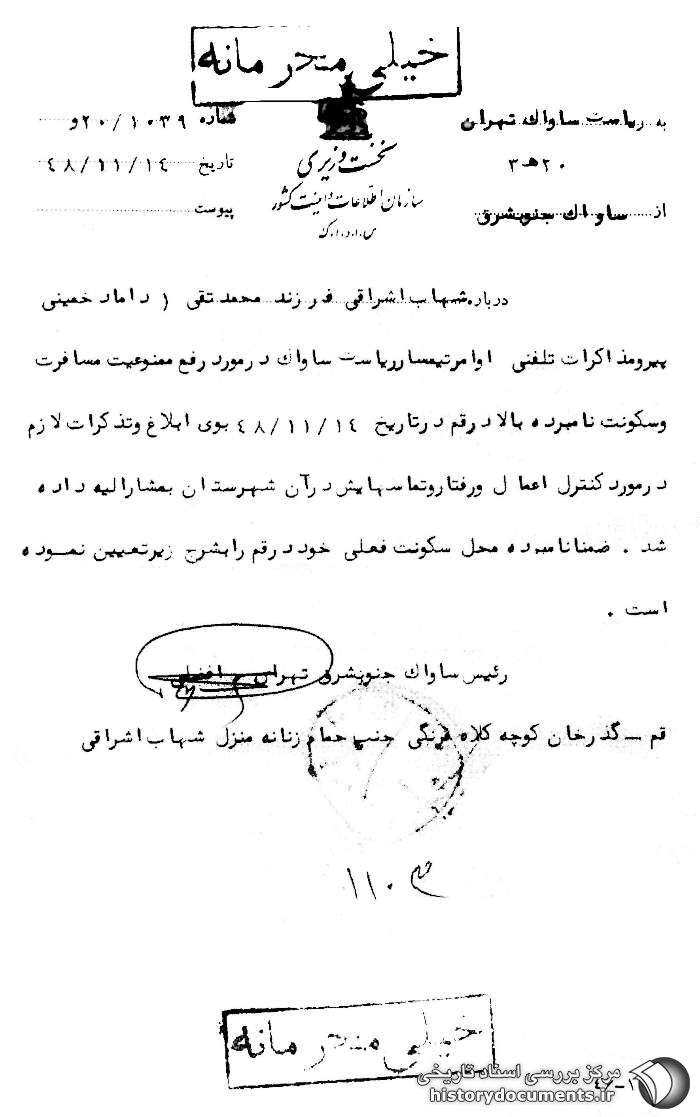 خیلی محرمانه
به ریاست ساواک تهران
۲۰هـ۳
از ساواک جنوبشرق
نخست وزیری
سازمان اطلاعات و امنیت کشور
س.ا.و.ا.ک
شماره ۲۰/۱۰۳۹و
تاریخ ۴۸/۱۱/۱۴
پیوست
درباره شهاب اشراقی فرزند محمدتقی ( داماد خمینی
پیرومذاکرات تلفنی اوامرتیمسارریاست ساواک درمورد رفع ممنوعیت مسافرت
وسکونت نامبرده بالا درقم درتاریخ ۴۸/۱۱/۱۴ بوی ابلاغ وتذکرات لازم
درمورد کنترل اعمال ورفتاروتماسهایش درآن شهرستان بمشارالیه داده
شد . ضمنا نامبرده محل سکونت فعلی خود درقم رابشرح زیرتعیین نموده
است .
رئیس ساواک جنوبشرق تهران افضلی
قم ــ گذرخان کوچه کلاه فرنگی جنب حمام زنانه منزل شهاب اشراقی
۱۱۰۳
خیلی محرمانه
مرکز بررسی اسناد تاریخی
historydocuments.ir